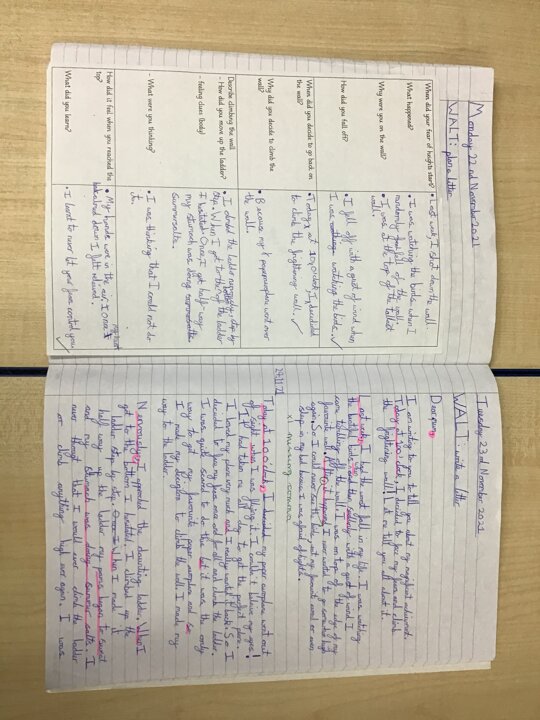 Monday 22nd November 2021
WALT: plan a letter
When did your fear of heights start?
• Last week I shot down the wall
What happened?
• I was watching the birds, when I randomly fell off the wall.
Why were you on the wall?
• I was at the top of the tallest wall.
How did you fall off?
• I fell off with a gust of wind when I was watching the birds.
When did you decide to go back on the wall?
• Today, at 10:00 o'clock, I decided to climb the frightening wall.
Why did you decide to climb the wall?
• Because my paper aeroplane went over the wall.
Describe climbing the wall
- How did you move up the ladder?
- feeling clues (body)
• I climbed the ladder nervously, step by step. When I got to the of the ladder
I hesitated. Once I got half way
my stomach was doing
summersaults.
- What were you thinking?
• I was thinking that I could not do it.
How did it feel when you reached the top?
• My hands were in the air, I once my heart
down I felt relieved.
What did you learn?
• I learnt to never let your fear control you.
Tuesday 23rd November 2021
WALT: write a letter
Dear
I am writing to you to tell you about my magnificent adventure.
Today, at 10:00 o'clock, I decided to face my fears and climb
the frightening wall! Let me tell you all about it.
Last week, I had the worst fall in my life. I was watching
the beautiful birds and then suddenly with a gust of wind I
came tumbling off the wall. I was on top of the edge of my
favourite wall. After it happened, I never wanted to go somewhere high
again. So I could never see the birds, eat my favourite meal or even
sleep in my bed because I was afraid of heights.
x1 missing comma
24.11.21
Today at 10:00 o'clock, my paper aeroplane went out
of sight when I was flying it. I couldn't believe my eyes!
It had taken me forever to get the perfect plane.
I loved my plane very much and I really wanted it back! So I
decided to face my fear once and for all and climb the ladder.
I was quite scared to do this but it was the only
way to get my favourite paper aeroplane and so
I made my decision to climb the wall. I made my
way to the ladder.
Nervously, I approached the devastating ladder. When I
got to the bottom I hesitated. I climbed up the
ladder step by step. When I made it
half way up the ladder my palms began to sweat
and my stomach was doing summer salts. I
never thought that I would ever climb the ladder
or climb anything high ever again. I was